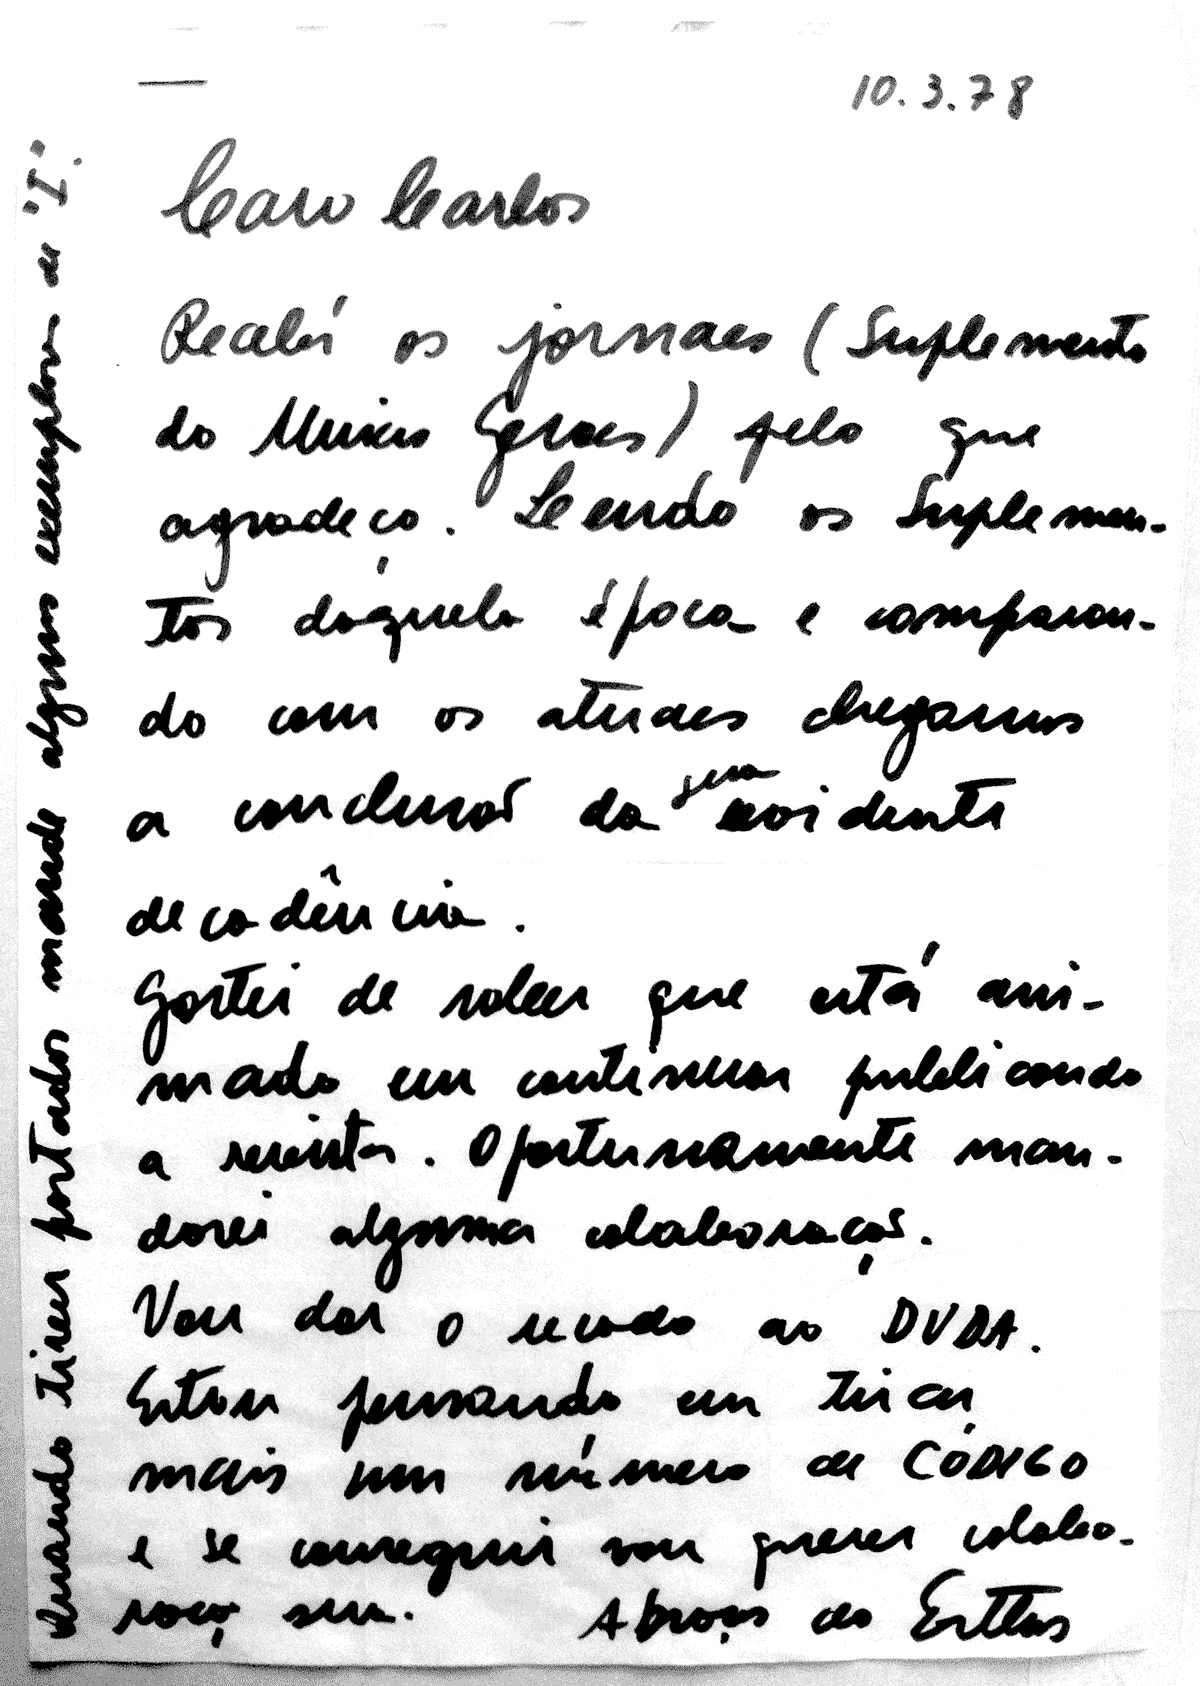 10.3.78
Caro Carlos
Recebí os jornaes (Suplemento
do Minas Geraes) pelo que
agradeço. Lendo os Suplemen-
tos daquela época e comparan-
do com os atuaes chegamos
a conclusão da sua evidente
decadência.
Gostei de saber que está ani-
mado em continuar publicando
a revista. Oportunamente man-
darei alguma colaboração.
Vou dar o recado ao DUDA.
Estou pensando em tirar
mais um número de CÓDIGO
e se conseguir vou querer colabo-
ração sua. Abraços do Erthos
Quando tiver portador mande alguns exemplares de "I".